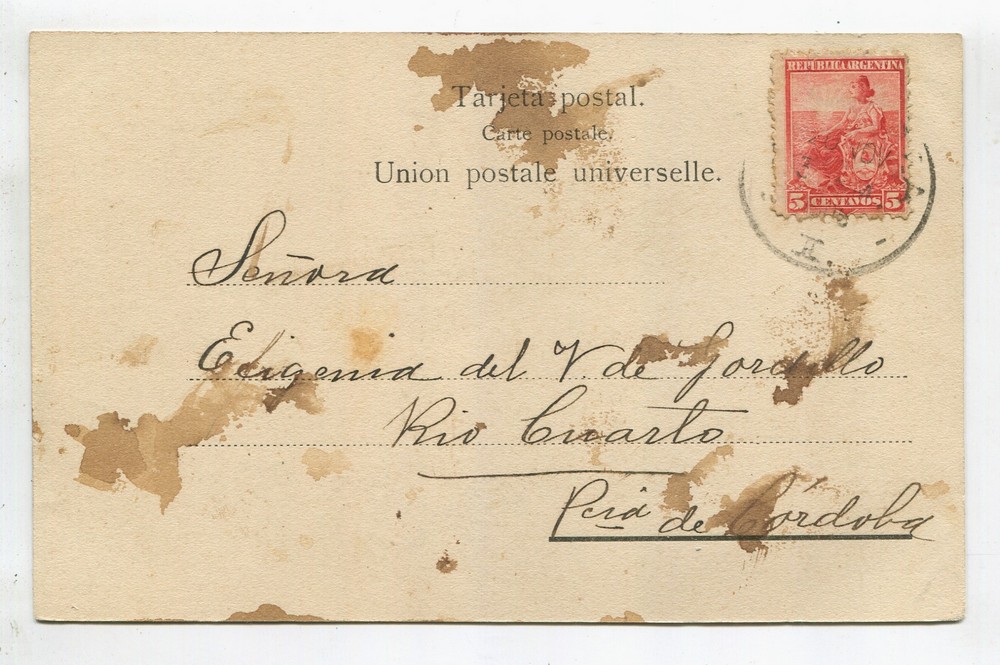 REPUBLICA ARGENTINA
5 CENTAVOS 5
Tarjeta postal.
Carte postale.
Union postale universelle.
Señora
Eugenia del V. de Gordillo
Rio Cuarto
Pcia de Córdoba